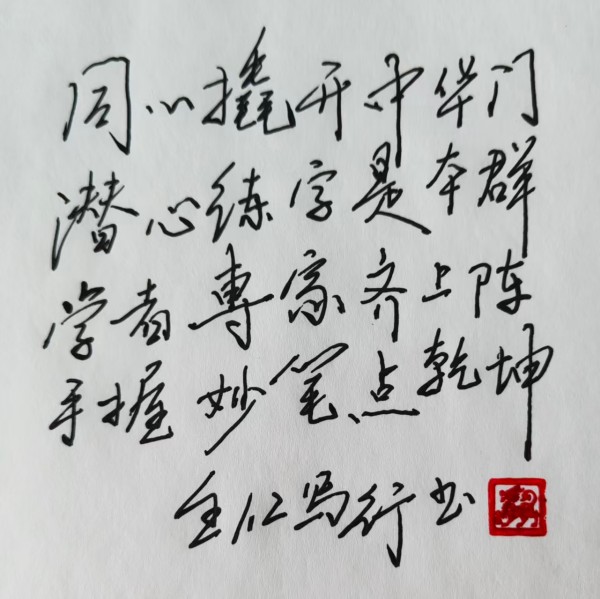 同心撬开中华门
潜心练字是本群
学者專家齐上阵
手握妙笔点乾坤
全仁写行书